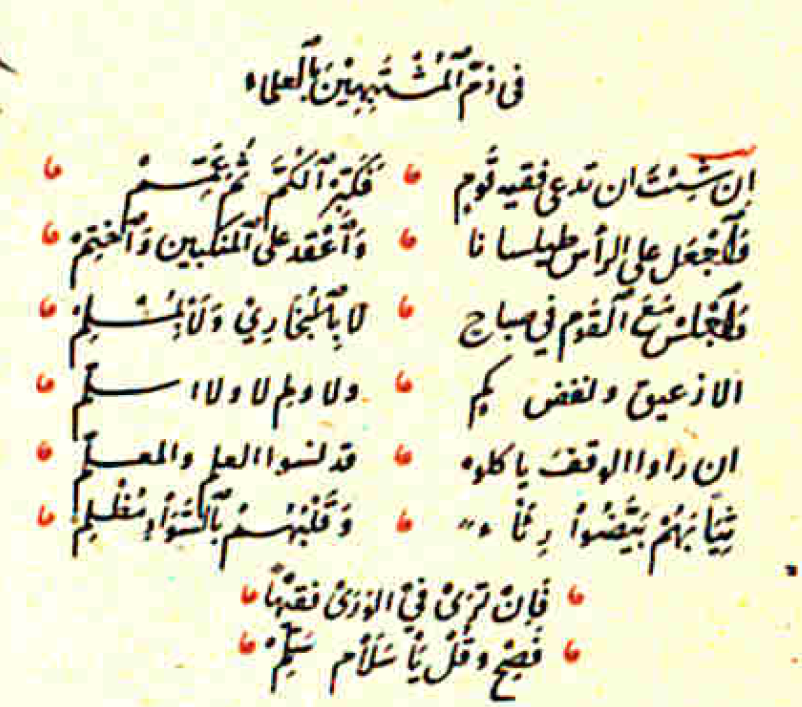 في ذم المُشْتَبِهِيْنَ بالعلماء
إن شِئْتَ ان تدعى فقيه قَومٍ فَكَبِّرِ ٱلْكُمَّ ثُمَّ عَمِّمْ
وَٱجْعَل على الرأس طيلسانا وَٱعْقِد على ٱلمنكبين وَٱخْتِمْ
وَٱجْلِسْ مَعَ ٱلقَوم في صباح لا بِٱلبُخَارِيْ وَلَا بِمُسْلِمْ
الا زعيق ونفض كم ولا ولم لا ولا اسلّم
ان راوا الوقف ياكلوه قد نسوا العلم والمعلّم
ثِيَابَهُمْ بَيَّضُواْ وَقَلْبُهُمْ بِٱلسَّوَاْدِ مُظْلِمْ
فَإِنْ تَرَىْ فِيْ الوَرَىْ فقيهًا
فَصِحْ وَقُلْ يَاْ سَلَاْم سَلِّمْ